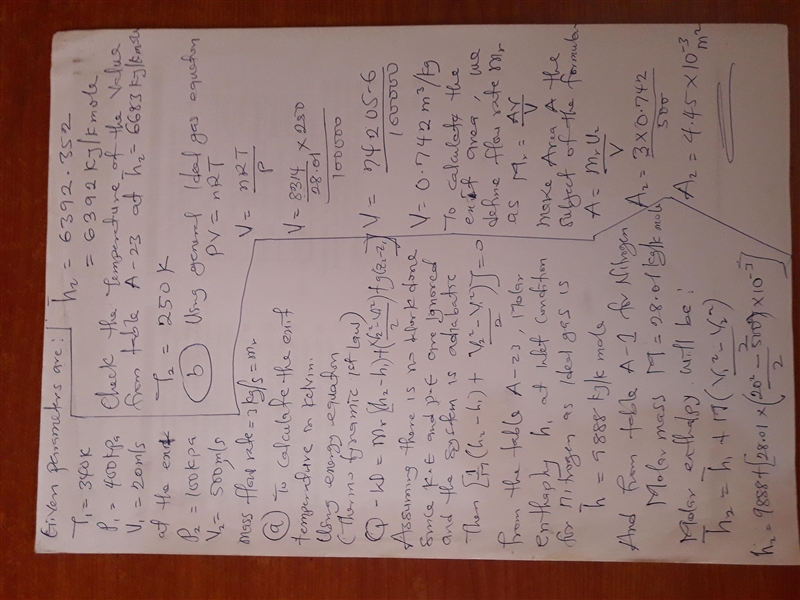 Given parameters are:
T₁ = 340K
P₁ = 400kpa
V₁ = 20m/s
at the exit
P₂ = 100kpa
V₂ = 500m/s
mass flow rate = 3kg/s = mr
(a) To calculate the exit
temperature in kelvin.
Using energy equation
(Thermo dynamic 1st law)
Q - W = Mr[(h₂ - h₁) + (V₂² - V₁²)/2 + g(z₂-z₁)]
Assuming there is no work done
since K.E and p.E are ignored
and the system is adiabatic
Then [1/M (h₂ - h₁) + (V₂² - V₁²)/2] = 0
from the table A-23, Molar
enthalphy h₁ at inlet condition
for nitrogen as ideal gas is
h̅ = 9888 kj/kmole
And from table A-1 for Nitrogen
Molar mass M = 28.01 kg/kmole
Molar enthalpy will be:
h̅₂ = h̅₁ + M(V₁² - V₂²)/2
h₂ = 9888 + [28.01 × (20² - 500²)/2 × 10⁻³]
h̅₂ = 6392.352
= 6392 kj/kmole
Check the temperature of the value
from table A-23 at h̅₂ = 6683 kj/kmole
T₂ = 250K
(b) Using general Ideal gas equation
PV = nRT
V = nRT/P
V = 8314/28.01 × 250 / 100000
V = 74205.6/100000
V = 0.742 m³/kg
To calculate the
exit area, we
define flow rate Mr
as Mr = AV/V
make Area A the
subject of the formular
A = MrV₂/V
A₂ = 3 × 0.742/500
A₂ = 4.45 × 10⁻³ m²